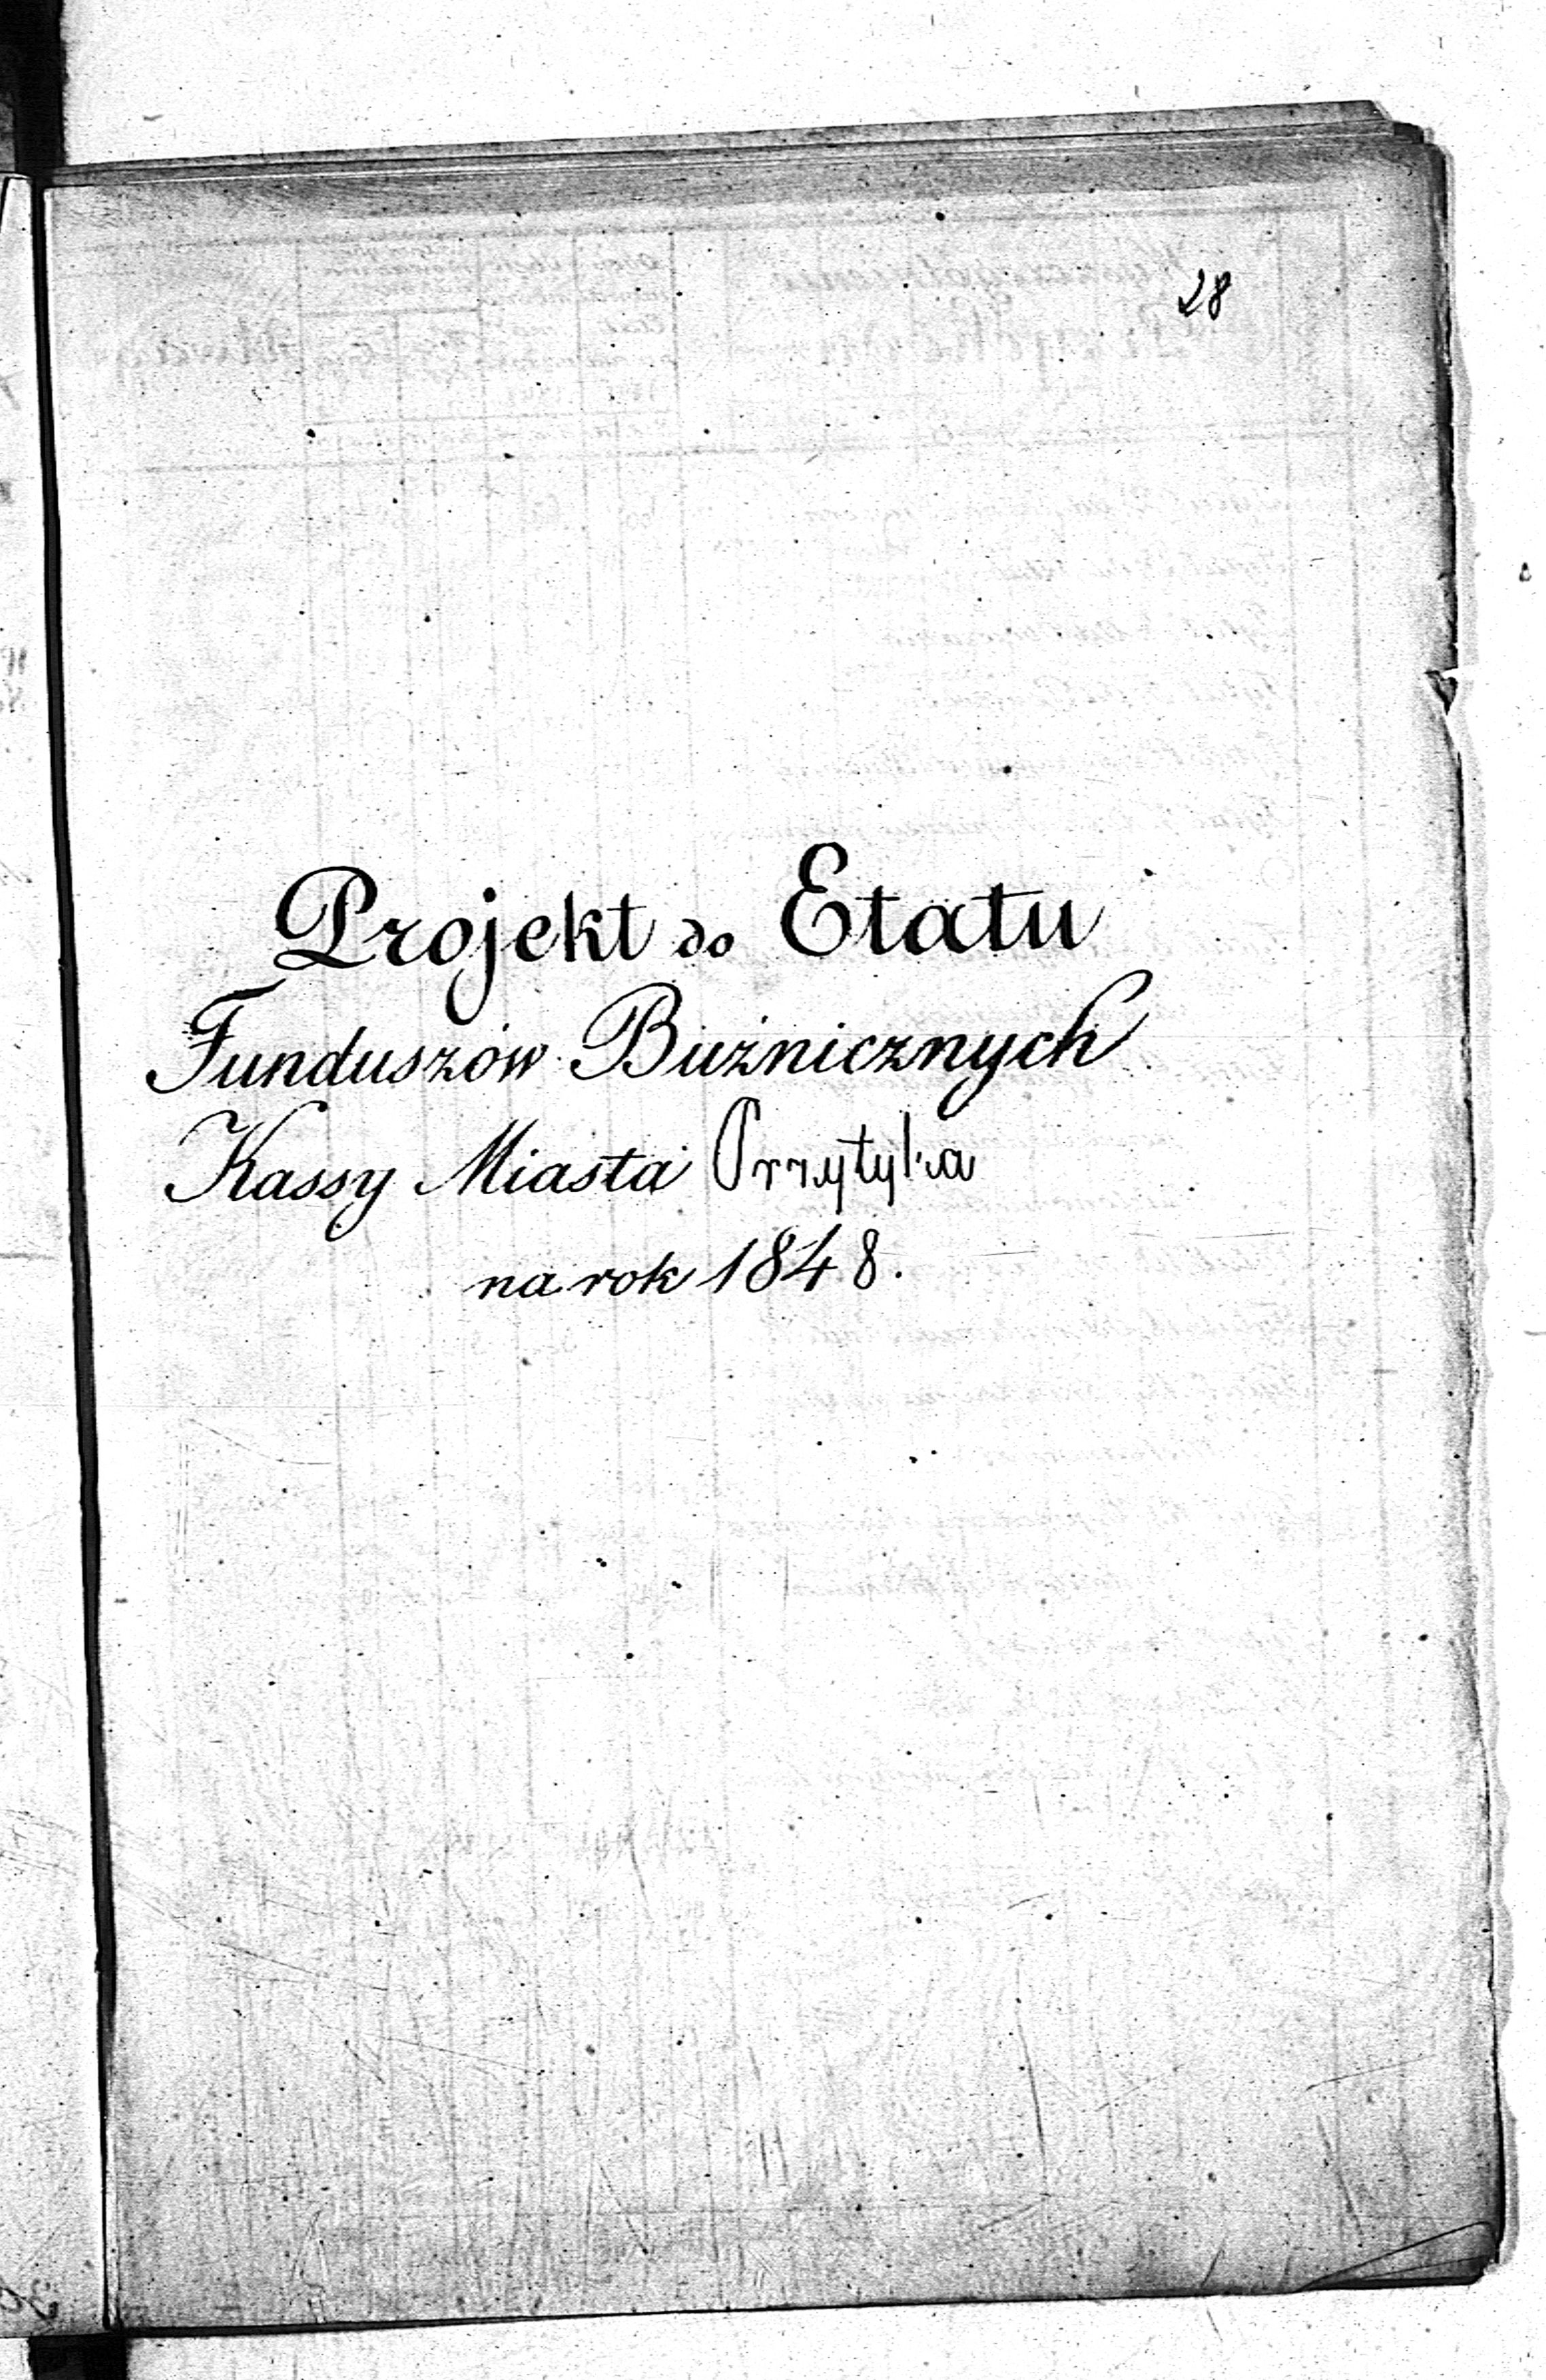 28
Projekt do Etatu
Funduszów Bużnicznych
Kassy Miasta Przytyka
na rok 1848.